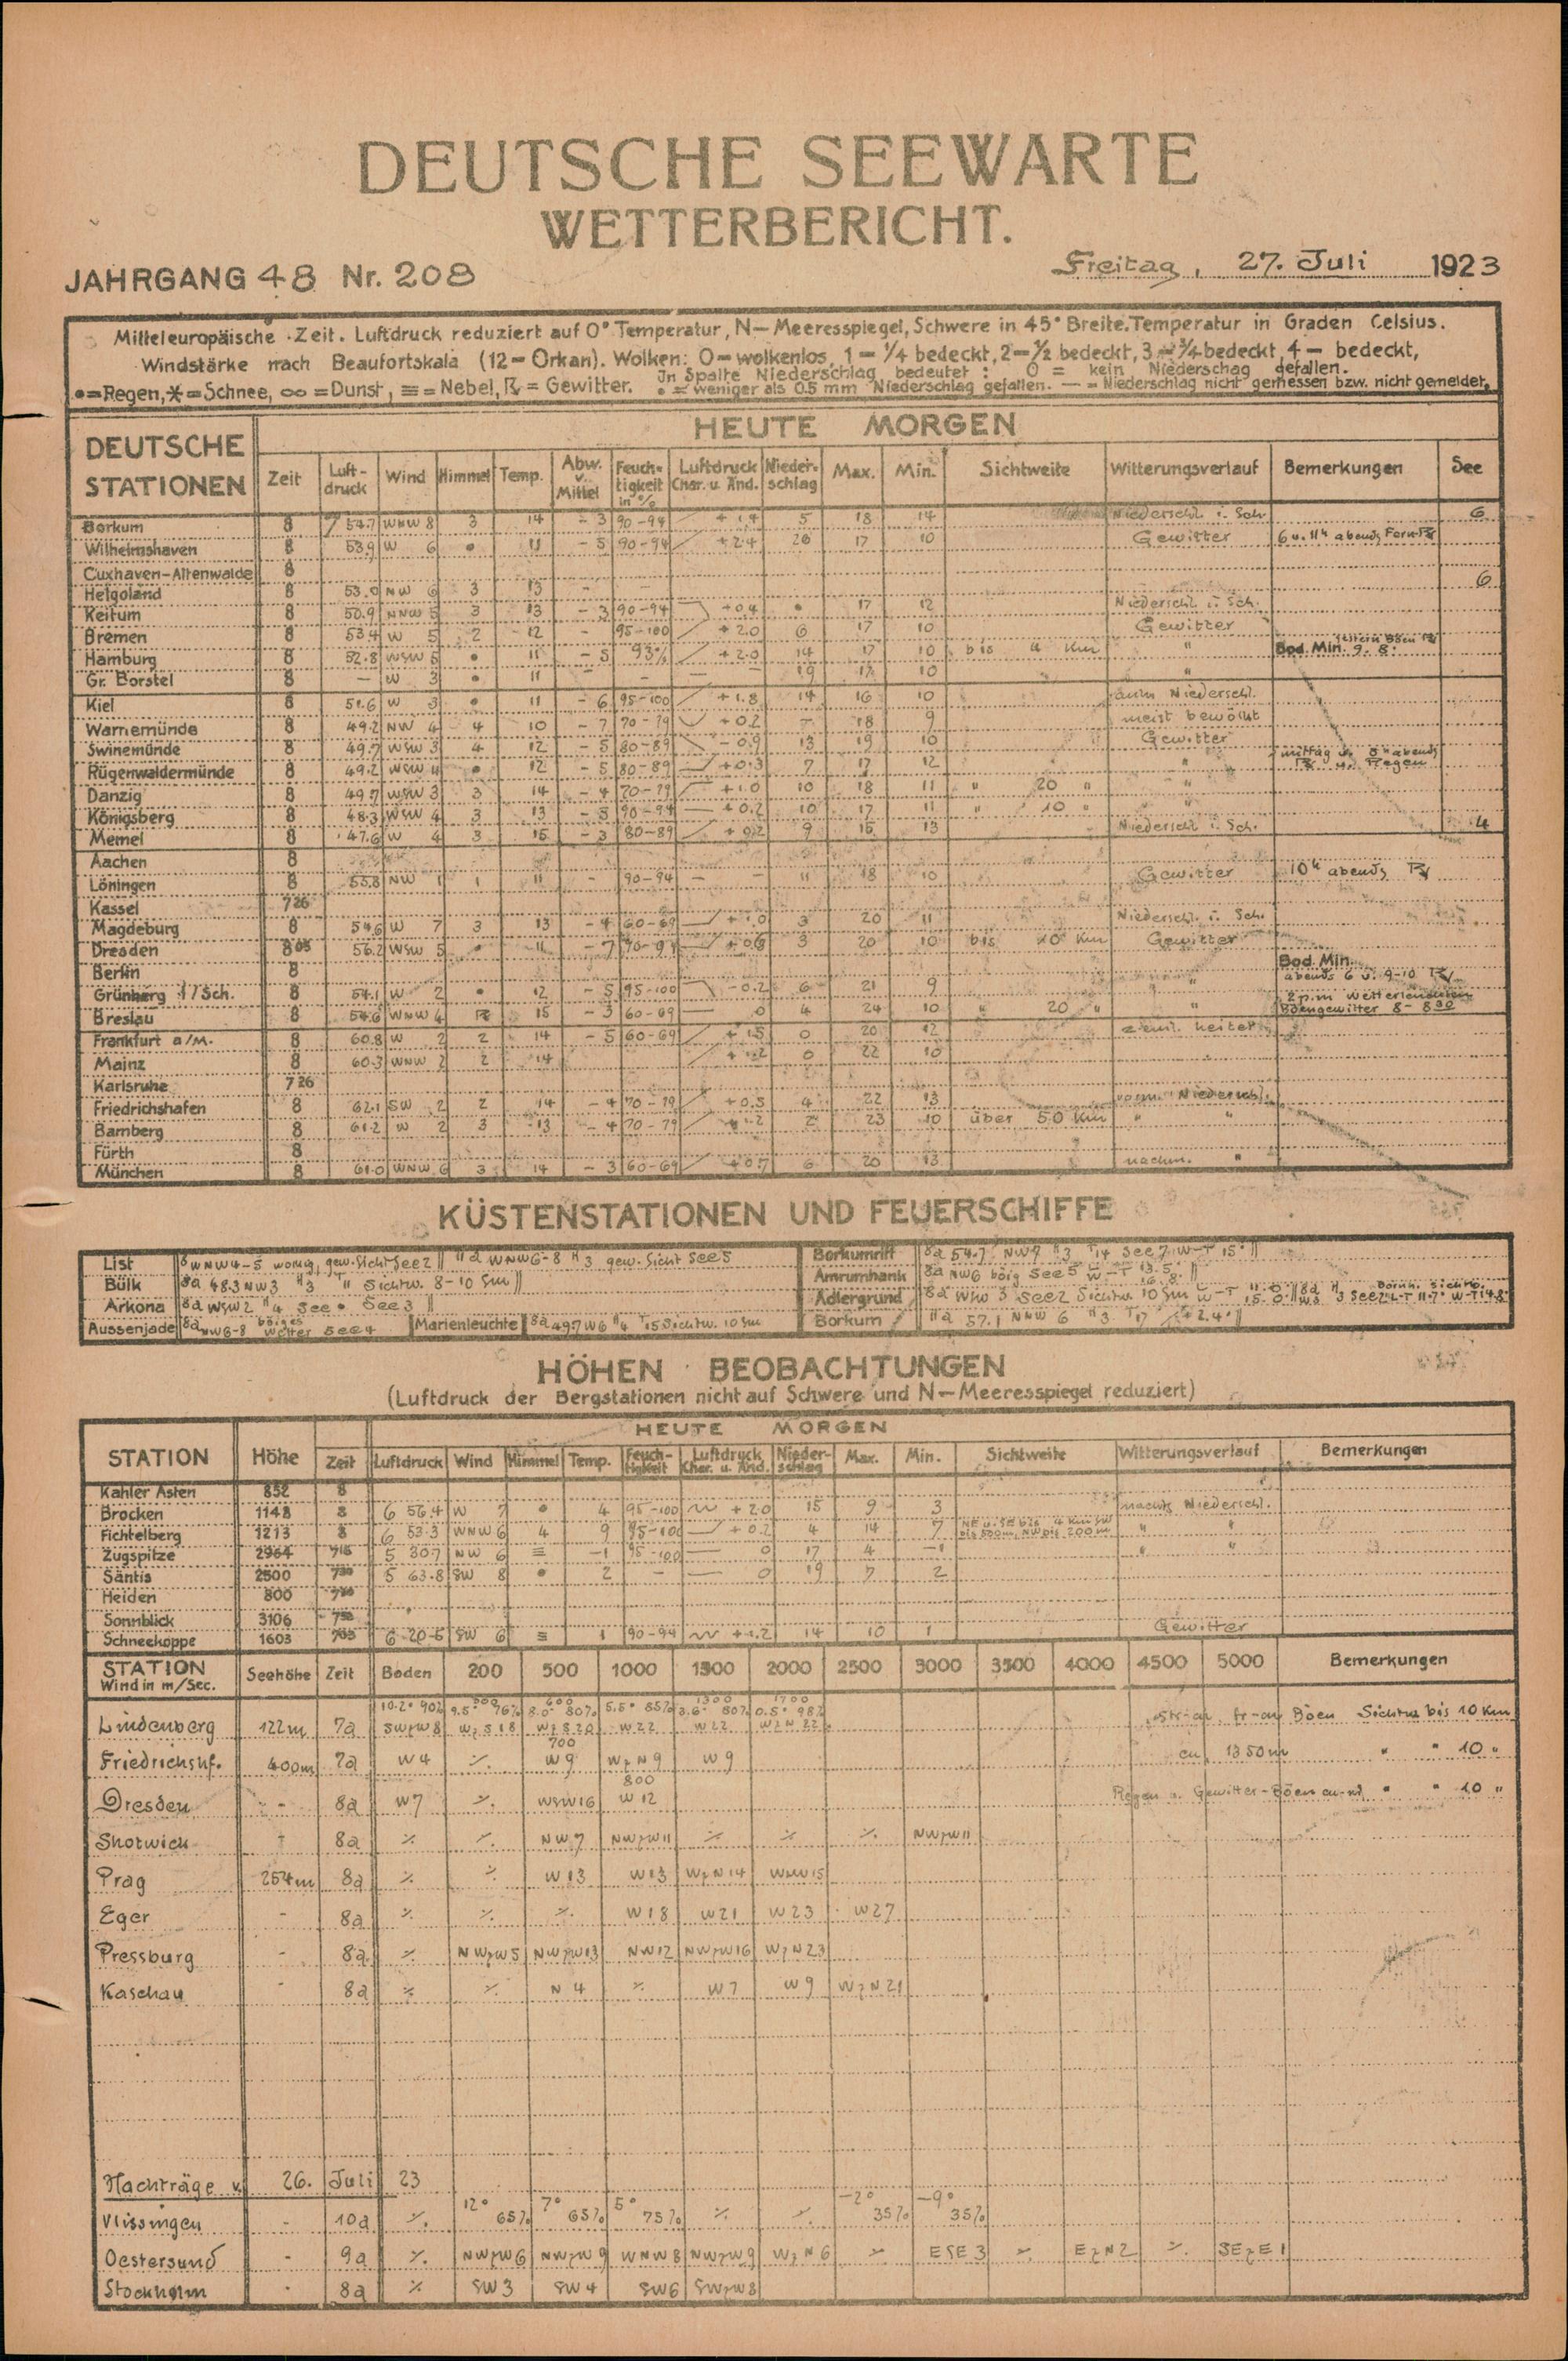 DEUTSCHE SEEWARTE
WETTERBERICHT.
JAHRGANG 48 Nr. 208 Freitag, 27. Juli 1923
Mitteleuropäische Zeit. Luftdruck reduziert auf 0° Temperatur, N—Meeresspiegel, Schwere in 45° Breite. Temperatur in Graden Celsius.
Windstärke nach Beaufortskala (12=Orkan). Wolken: 0=wolkenlos, 1=1/4 bedeckt, 2=1/2 bedeckt, 3=3/4 bedeckt, 4= bedeckt,
In Spalte Niederschlag bedeutet: 0 = kein Niederschag gefallen.
•=Regen, *=Schnee, ∞=Dunst, ≡=Nebel, ☈=Gewitter. • = weniger als 0.5 mm Niederschlag gefallen. — = Niederschlag nicht gemessen bzw. nicht gemeldet.
DEUTSCHE STATIONEN HEUTE MORGEN
Zeit Luftdruck Wind Himmel Temp. Abw. v. Mittel Feuchtigkeit in % Luftdruck Char. u. Änd. Niederschlag Max. Min. Sichtweite Witterungsverlauf Bemerkungen See
Borkum 8 7 54.7 WNW 8 3 14 - 3 90-94 + 1.4 5 18 14 Niederschl. i. Sch. 6
Wilhelmshaven 8 53.9 W 6 • 11 - 5 90-94 +2.4 26 17 10 Gewitter 6 u. 11h abends Fern-☈
Cuxhaven-Altenwalde 8
Helgoland 8 53.0 NW 6 3 13 - - 6
Keitum 8 50.9 NNW 5 3 13 - 3 90-94 +0.4 • 17 12 Niederschl. i. Sch.
Bremen 8 53.4 W 5 2 12 - 95-100 + 2.0 6 17 10 Gewitter
Hamburg 8 52.8 WSW 5 • 11 - 5 93% + 2.0 14 17 10 bis 4 Km " Bod. Min. 9.8°
Gr. Borstel 8 — W 3 • 11 - — - 19 17 10 "
Kiel 8 51.6 W 3 • 11 - 6 95-100 + 1.8 14 16 10 Niederschl.
Warnemünde 8 49.2 NW 4 4 10 - 7 70-79 + 0.2 - 18 9 meist bewölkt
Swinemünde 8 49.7 WSW 3 4 12 - 5 80-89 - 0.9 13 19 10 Gewitter
Rügenwaldermünde 8 49.2 WSW 4 • 12 - 5 80-89 +0.3 7 17 12 " mittag u. 8h abends ☈ u. Regen
Danzig 8 49.7 WSW 3 3 14 - 4 70-79 + 1.0 10 18 11 " 20 " "
Königsberg 8 48.3 WSW 4 3 13 - 5 90-94 + 0.2 10 17 11 " 10 " "
Memel 8 47.6 W 4 3 15 - 3 80-89 + 0.2 9 15 13 Niederschl. i. Sch. 4
Aachen 8
Löningen 8 55.8 NW 1 1 11 - 90-94 - - 11 18 10 Gewitter 10h abends ☈
Kassel 7 26
Magdeburg 8 54.6 W 7 3 13 - 4 60-69 3 20 11 Niederschl. i. Sch.
Dresden 8 05 56.2 WSW 5 • 11 - 7 90-94 + 0.6 3 20 10 bis 10 Km Gewitter
Berlin 8 Bod. Min.
Grünberg i/Sch. 8 54.1 W 2 • 12 - 5 95-100 - 0.2 6 21 9 " abends 6 u. 9-10 ☈
Breslau 8 54.6 WNW 4 ☈ 15 - 3 60-69 — 0 4 24 10 " 20 " 2 p.m. Wetterleuchten Böengewitter 8 - 8 30
Frankfurt a/M. 8 60.8 W 2 2 14 - 5 60-69 + 1.5 0 20 12 zieml. heiter
Mainz 8 60.3 WNW 2 2 14 + 1.2 0 22 10 "
Karlsruhe 7 26
Friedrichshafen 8 62.1 SW 2 2 14 - 4 70-79 + 0.5 4 22 13 vorm. Niederschl.
Bamberg 8 61.2 W 2 3 13 - 4 70-79 2 23 10 über 50 Km " "
Fürth 8
München 8 61.0 WNW 6 3 14 - 3 60-69 + 0.7 6 20 13 nachm. "
KÜSTENSTATIONEN UND FEUERSCHIFFE
List 8 WNW 4-5 wolkig, gew. Sicht See 2 || 11a WNW 6-8 H3 gew. Sicht See 5
Bülk 8a 48.3 NW 3 H3 " Sichtw. 8-10 Sm ||
Arkona 8a WSW 2 H4 See • See 3 ||
Aussenjade 8a NW 6-8 böiges Wetter See 4
Marienleuchte 8a 49.7 W 6 H4 T15 Sichtw. 10 Sm
Borkumriff 8a 54.7 NW 7 H3 T14 See 7 W-T 15° ||
Amrumbank 8a NW 6 böig See 5
Adlergrund 8a WSW 3 See 2 Sichtw. 10 Sm
Borkum 11a 57.1 NNW 6 H3 T17 + 2.4 ||
HÖHEN BEOBACHTUNGEN
(Luftdruck der Bergstationen nicht auf Schwere und N—Meeresspiegel reduziert)
STATION Höhe HEUTE MORGEN
Zeit Luftdruck Wind Himmel Temp. Feuchtigkeit Luftdruck Char. u. Änd. Niederschlag Max. Min. Sichtweite Witterungsverlauf Bemerkungen
Kahler Asten 852 8
Brocken 1148 8 6 56.4 W 7 • 4 95-100 + 2.0 15 9 3 nachts Niederschl.
Fichtelberg 1213 8 6 53.3 WNW 6 4 9 95-100 + 0.2 4 14 7 NE u. SE bis 4 Km SW bis 500m, NW bis 200 m " "
Zugspitze 2964 7 15 5 30.7 NW 6 ≡ -1 95-100 — 0 17 4 -1 " "
Säntis 2500 7 30 5 63.8 SW 8 • 2 - — 0 19 7 2
Heiden 800 7 30
Sonnblick 3106 7 50
Schneekoppe 1603 6 20.5 SW 6 ≡ 1 90-94 + 1.2 14 10 1 Gewitter
STATION Wind in m/Sec. Seehöhe Zeit Boden 200 500 1000 1500 2000 2500 3000 3500 4000 4500 5000 Bemerkungen
10.2° 90% 9.5° 76% 600 8.0° 80% 5.5° 85% 1300 3.6° 80% 1700 0.5° 98%
Lindenberg 122m 7a SWzW 8 WzS 18 WzS 20 W 22 W 22 WzN 22 Böen Sichtw. bis 10 Km
Friedrichshf. 400m 7a W 4 ⁒ 700 W 9 WzN 9 W 9 cu 1350m " " 10 "
Dresden - 8a W 7 ⁒ WSW 16 800 W 12 Regen u. Gewitter-Böen cu-ni " " 10 "
Shotwick - 8a ⁒ ⁒ NW 7 NWzW 11 ⁒ ⁒ ⁒ NWzW 11
Prag 254m 8a ⁒ ⁒ W 13 W 13 WzN 14 WNW 15
Eger - 8a ⁒ ⁒ ⁒ W 18 W 21 W 23 W 27
Pressburg - 8a ⁒ NWzW 5 NWzW 13 NW 12 NWzW 16 WzN 23
Kaschau - 8a ⁒ ⁒ N 4 ⁒ W 7 W 9 WzN 21
Nachträge v. 26. Juli 23
Vlissingen - 10a ⁒ 12° 65% 7° 65% 5° 75% ⁒ ⁒ -2° 35% -9° 35%
Oestersund - 9a ⁒ NWzW 6 NWzW 9 WNW 8 NWzW 9 WzN 6 ⁒ ESE 3 ⁒ EzN 2 ⁒ SEzE 1
Stockholm - 8a ⁒ SW 3 SW 4 SW 6 SWzW 8